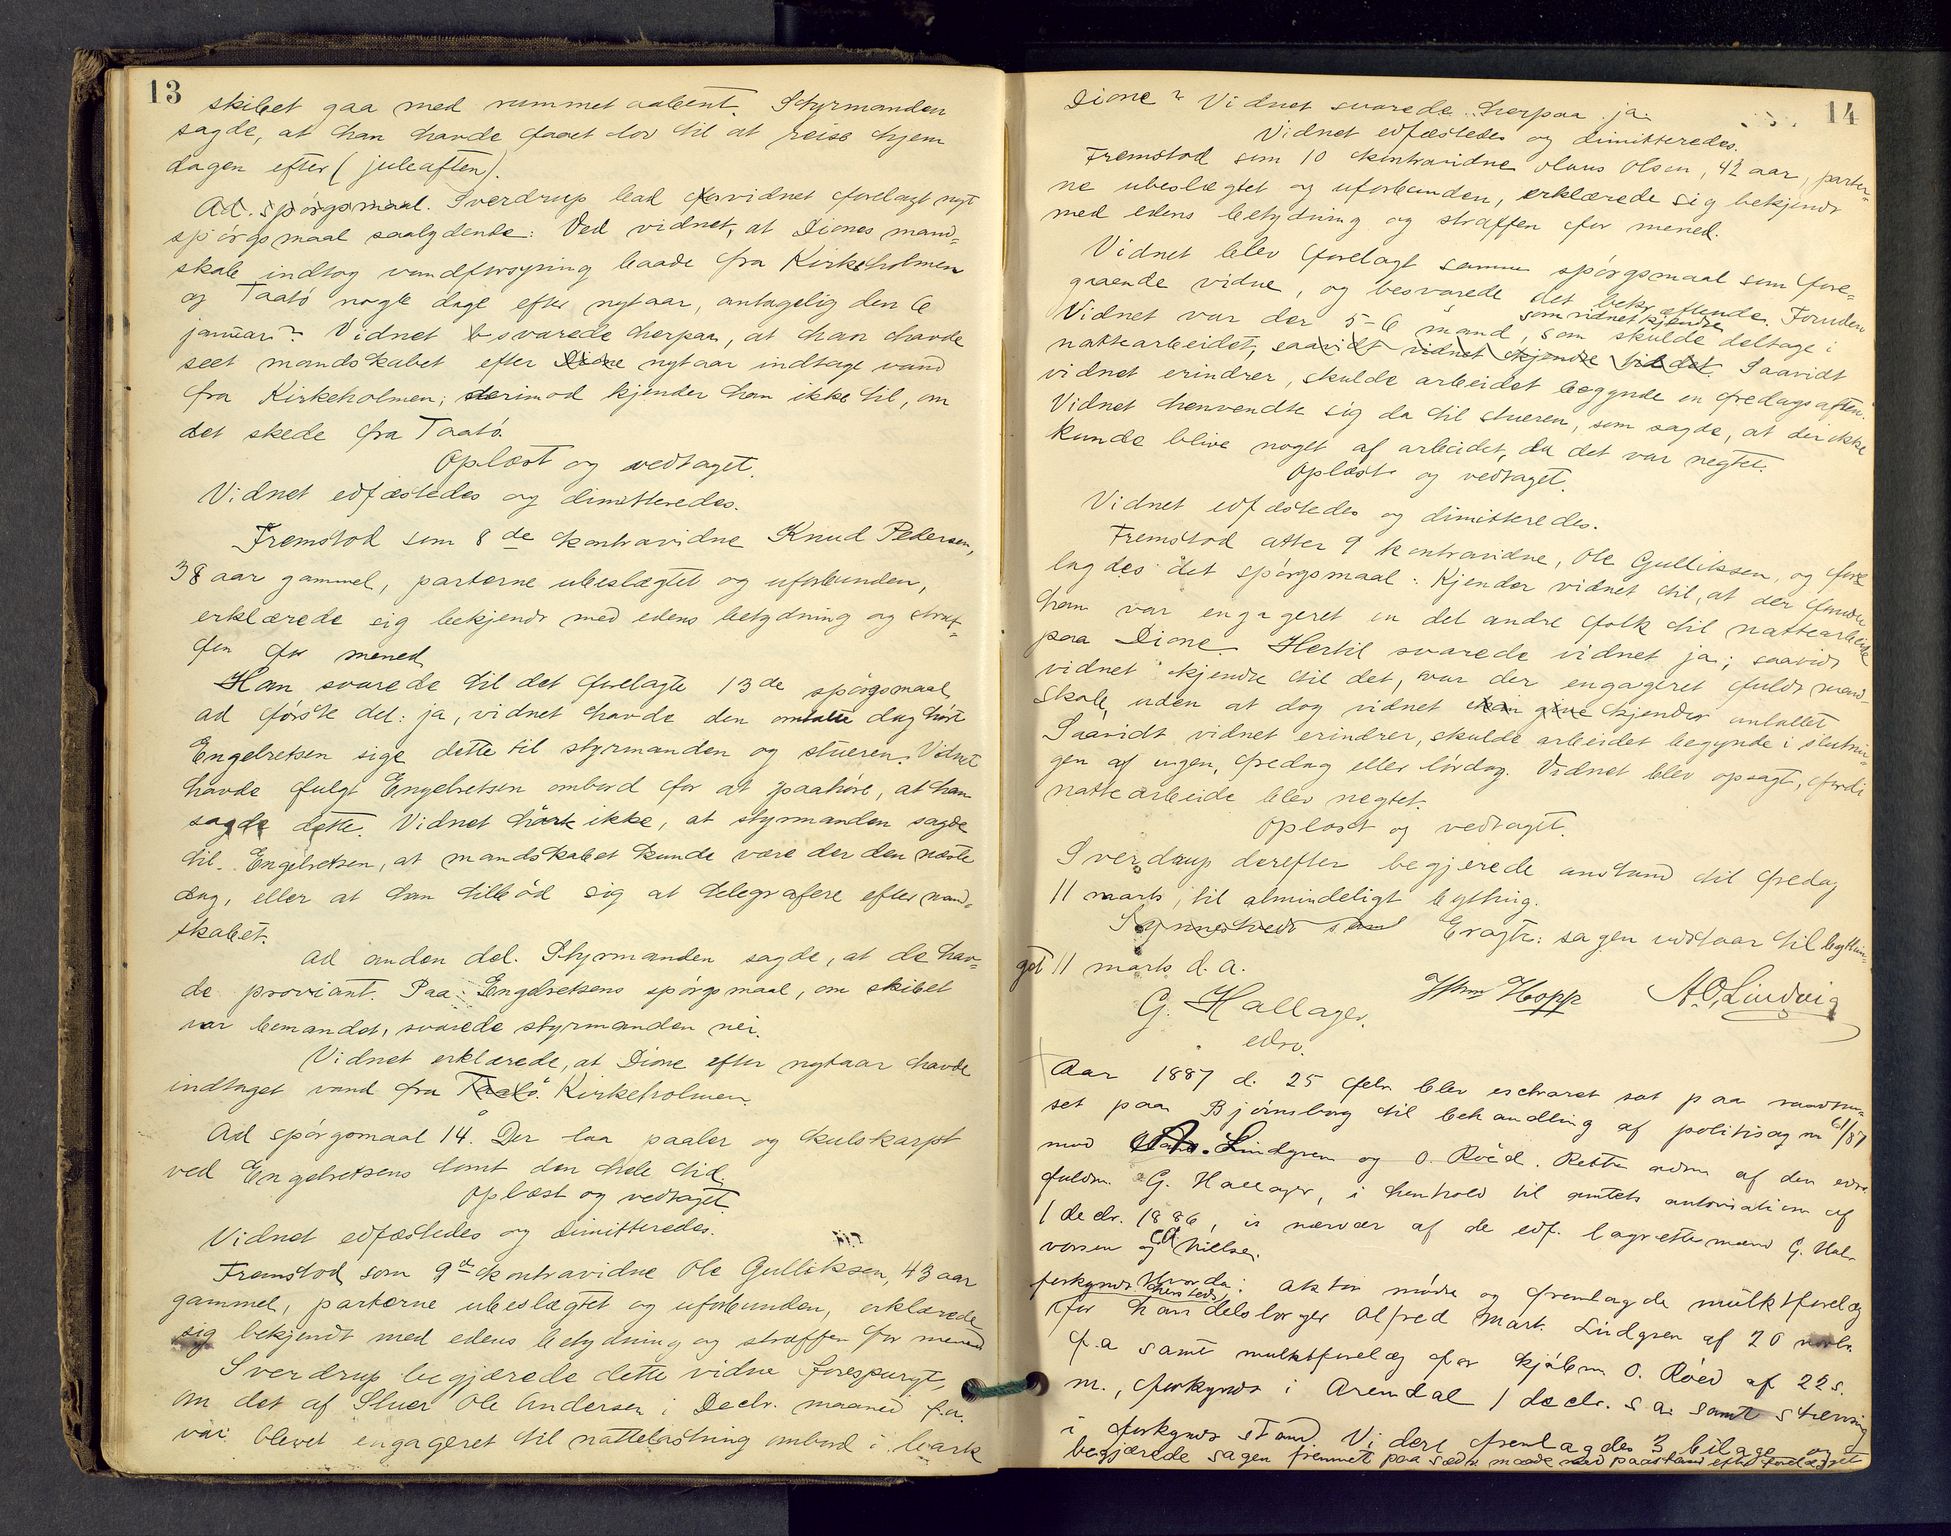 13
skibet gaa med rummet aabent. Styrmanden
sagde, at han havde faaet lov til at reise hjem
dagen efter (juleaften).
Ad. spørgsmaal. Sverdrup bad vidnet forelagt nyt
spørgsmaal saalydende: Ved vidnet, at Diones mand-
skab indtog vandforsyning baade fra Kirkeholmen
og Taatø nogle dage efter nytaar, antagelig den 6
januar? Vidnet besvarede herpaa, at han havde
seet mandskabet efter Dione nytaar indtage vand
fra Kirkeholmen; derimod kjender han ikke til, om
det skede fra Taatø.
Oplæst og vedtaget.
Vidnet edfæstedes og dimitteredes.
Fremstod som 8de kontravidne Knud Pedersen,
38 aar gammel, parterne ubeslægtet og uforbunden,
erklærede sig bekjendt med edens betydning og straf-
fen for mened.
Han svarede til det forelagte 13de spørgsmaal
ad første del: ja, vidnet havde den omtalte dag hørt
Engebretsen sige dette til styrmanden og stueren. Vidnet
havde fulgt Engebretsen ombord for at paahøre, at han
sagde dette. Vidnet hørte ikke, at styrmanden sagde
til Engebretsen, at mandskabet kunde være der den næste
dag, eller at han tilbød sig at telegrafere efter mand-
skabet.
ad anden del. Styrmanden sagde, at de hav-
de proviant. Paa Engebretsens spørgsmaal, om skibet
var bemandet, svarede styrmanden nei.
Vidnet erklærede, at Dione efter nytaar havde
indtaget vand fra Taatø. Kirkeholmen.
Ad spørgsmaal 14. Der laa paaler og kulskarpt
ved Engebretsens tomt den hele tid.
Oplæst og vedtaget.
Vidnet edfæstedes og dimitteredes.
Fremstod som 9de kontravidne Ole Gulliksen, 43 aar
gammel, parterne ubeslægtet og uforbunden, erklærede
sig bekjendt med edens betydning og straffen for mened
Sverdrup begjærede dette vidne forespurgt,
om det af Stuer Ole Andersen i Decbr. maaned f.a.
var blevet engageret til nattelastning ombord i bark
14
Dione? Vidnet svarede herpaa ja.
Vidnet edfæstedes og dimitteredes.
Fremstod som 10 kontravidne Olaus Olsen, 42 aar, parter-
ne ubeslægtet og uforbunden, erklærede sig bekjendt
med edens betydning og straffen for mened.
Vidnet blev forelagt samme spørgsmaal som fore-
gaaende vidne, og besvarede det bekræftende. Foruden
Vidnet var der 5-6 mand, som vidnet kjendte, som skulde deltage i
nattearbeidet, saavidt vidnet kjendte til det. Saavidt
vidnet erindrer, skulde arbeidet begynde en fredags aften.
Vidnet henvendte sig da til stueren, som sagde, at der ikke
kunde blive noget af arbeidet, da det var negtet.
Oplæst og vedtaget.
Vidnet edfæstedes og dimitteredes.
Fremstod atter 9 kontravidne, Ole Gulliksen, og fore
lagdes det spørgsmaal: Kjender vidnet til, at der foruden
ham var engageret en del andre folk til nattearbeide
paa Dione. Hertil svarede vidnet ja; saavidt
vidnet kjendte til det, var der engageret fuldt mand-
skab, uden at dog vidnet kjender antallet
Saavidt vidnet erindrer, skulde arbeidet begynde i slutnin-
gen af ugen, fredag eller lørdag. Vidnet blev opsagt, fordi
nattearbeide blev negtet.
Oplæst og vedtaget.
Sverdrup derefter begjerede anstand til fredag
11 marts, til almindeligt bytting.
Eragtr: sagen udstaar til byttin-
get 11 marts d. a.
G. Hallager. Hopp A. O. Lindvig
edsv.
Aar 1887 d. 25 febr blev extraret sat paa raadhu-
set paa Bjørnsborg til behandling af politisag no 61/87
mod A. Lindgren og O. Røed. Retten adm af den edsv.
fuldm. G. Hallager, i henhold til amtets autorisation af
1 decbr. 1886, i nærvær af de edf. lagrettemænd G. Hal-
vorsen og Nielsen.
Hvorda: aktor mødte og fremlagde mulktforelæg
forkyndt hersteds, for handelsborger Alfred Mart. Lindgren af 20 novbr.
f.a samt mulktforelæg for kjøbm O. Røed af 22 s.
m., forkyndt i Arendal 1 decbr. s a. samt stevning
i forkyndt stand. Videre fremlagdes 3 bilage og
begjærede sagen fremmet paa sædv maade med paastand efter forelægget